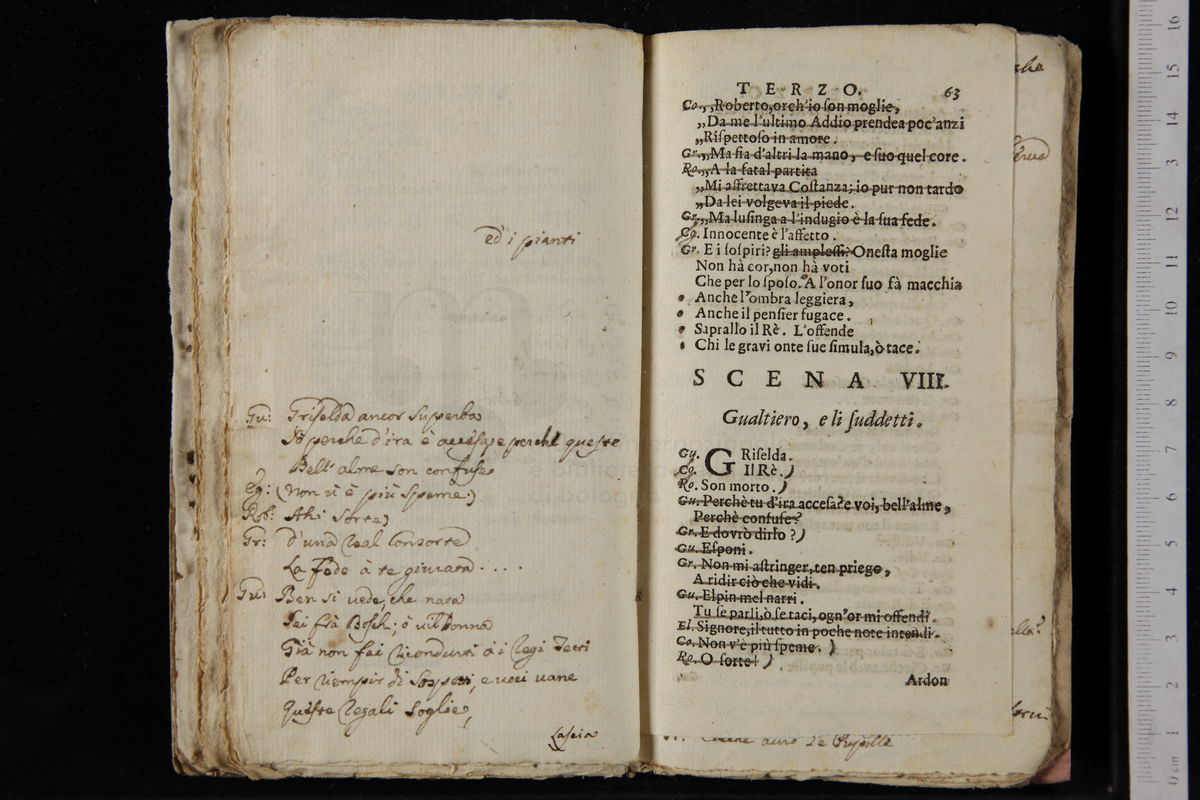 ed' i pianti
Gu: Griselda ancor superba
Sì perche d'ira è accesa, e perche queste
Bell' alme son confuse
Co: (Non v'è più speme.)
Rob: Ahi sorte)
Gr: d'una real Consorte
La Fede à te giurata . . . .
Gu: Ben si vede, che nata
Sei frà Boschi; ò vil donna
Già non fei ricondurti à i regi Tetti
Per riempir di sospetti, e voci vane
Queste regali soglie,
Lascia
TERZO. 63
Co. ,,Roberto, orch'io son moglie,
,,Da me l'ultimo Addio prendea poc'anzi
,,Rispettoso in amore.
Gr. ,,Ma sia d'altri la mano, e suo quel core.
Ro. ,,A la fatal partita
,,Mi affrettava Costanza; io pur non tardo
,,Da lei volgeva il piede.
Gr. ,,Ma lusinga a l'indugio è la sua fede.
Co. Innocente è l'affetto.
Gr. E i sospiri? gli amplessi? Onesta moglie
Non hà cor, non hà voti
Che per lo sposo. A l'onor suo fà macchia
Anche l'ombra leggiera,
Anche il pensier fugace.
Saprallo il Rè. L'offende
Chi le gravi onte sue simula, ò tace.
SCENA VIII.
Gualtiero, e li suddetti.
Gu. GRiselda.
Co. Il Rè.)
Ro. Son morto.)
Gu. Perchè tu d'ira accesa? e voi, bell'alme,
Perchè confuse?
Gr. E dovrò dirlo?)
Gu. Esponi.
Gr. Non mi astringer, ten priego,
A ridir ciò che vidi.
Gu. Elpin mel narri.
Tu se parli, ò se taci, ogn'or mi offendi.
El. Signore, il tutto in poche note intendi.
Co. Non v'è più speme.)
Ro. O sorte!)
Ardon